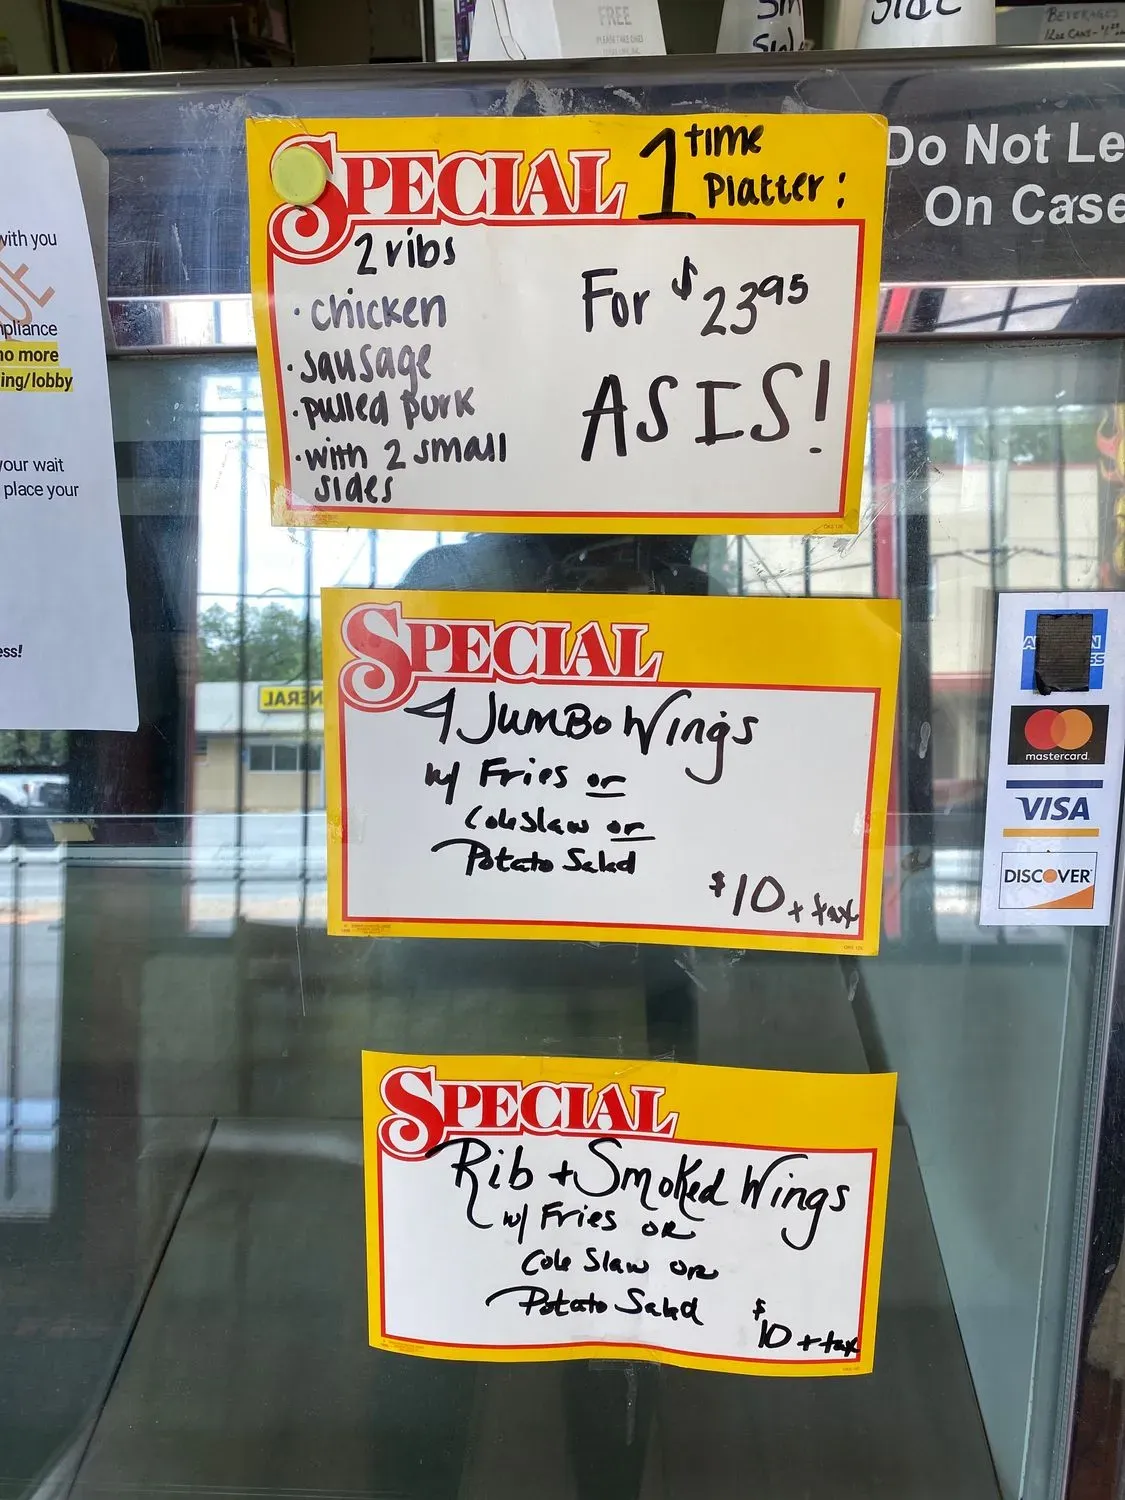 FREE
PLEASE TAKE ONE
SIDE
BEVERAGES
12oz CANS-
Do Not Le
On Case
with you
UE
mpliance
no more
ing/lobby
our wait
place your
ess!
SPECIAL
1 time
Platter:
2 ribs
• chicken
• sausage
• pulled pork
• with 2 small
sides
For $23.95
AS IS!
GENERAL
SPECIAL
4 Jumbo Wings
w/ Fries or
Cole Slaw or
Potato Salad
$10 + tax
SPECIAL
Rib + Smoked Wings
w/ Fries OR
Cole Slaw OR
Potato Salad
$10 + tax
mastercard
VISA
DISCOVER